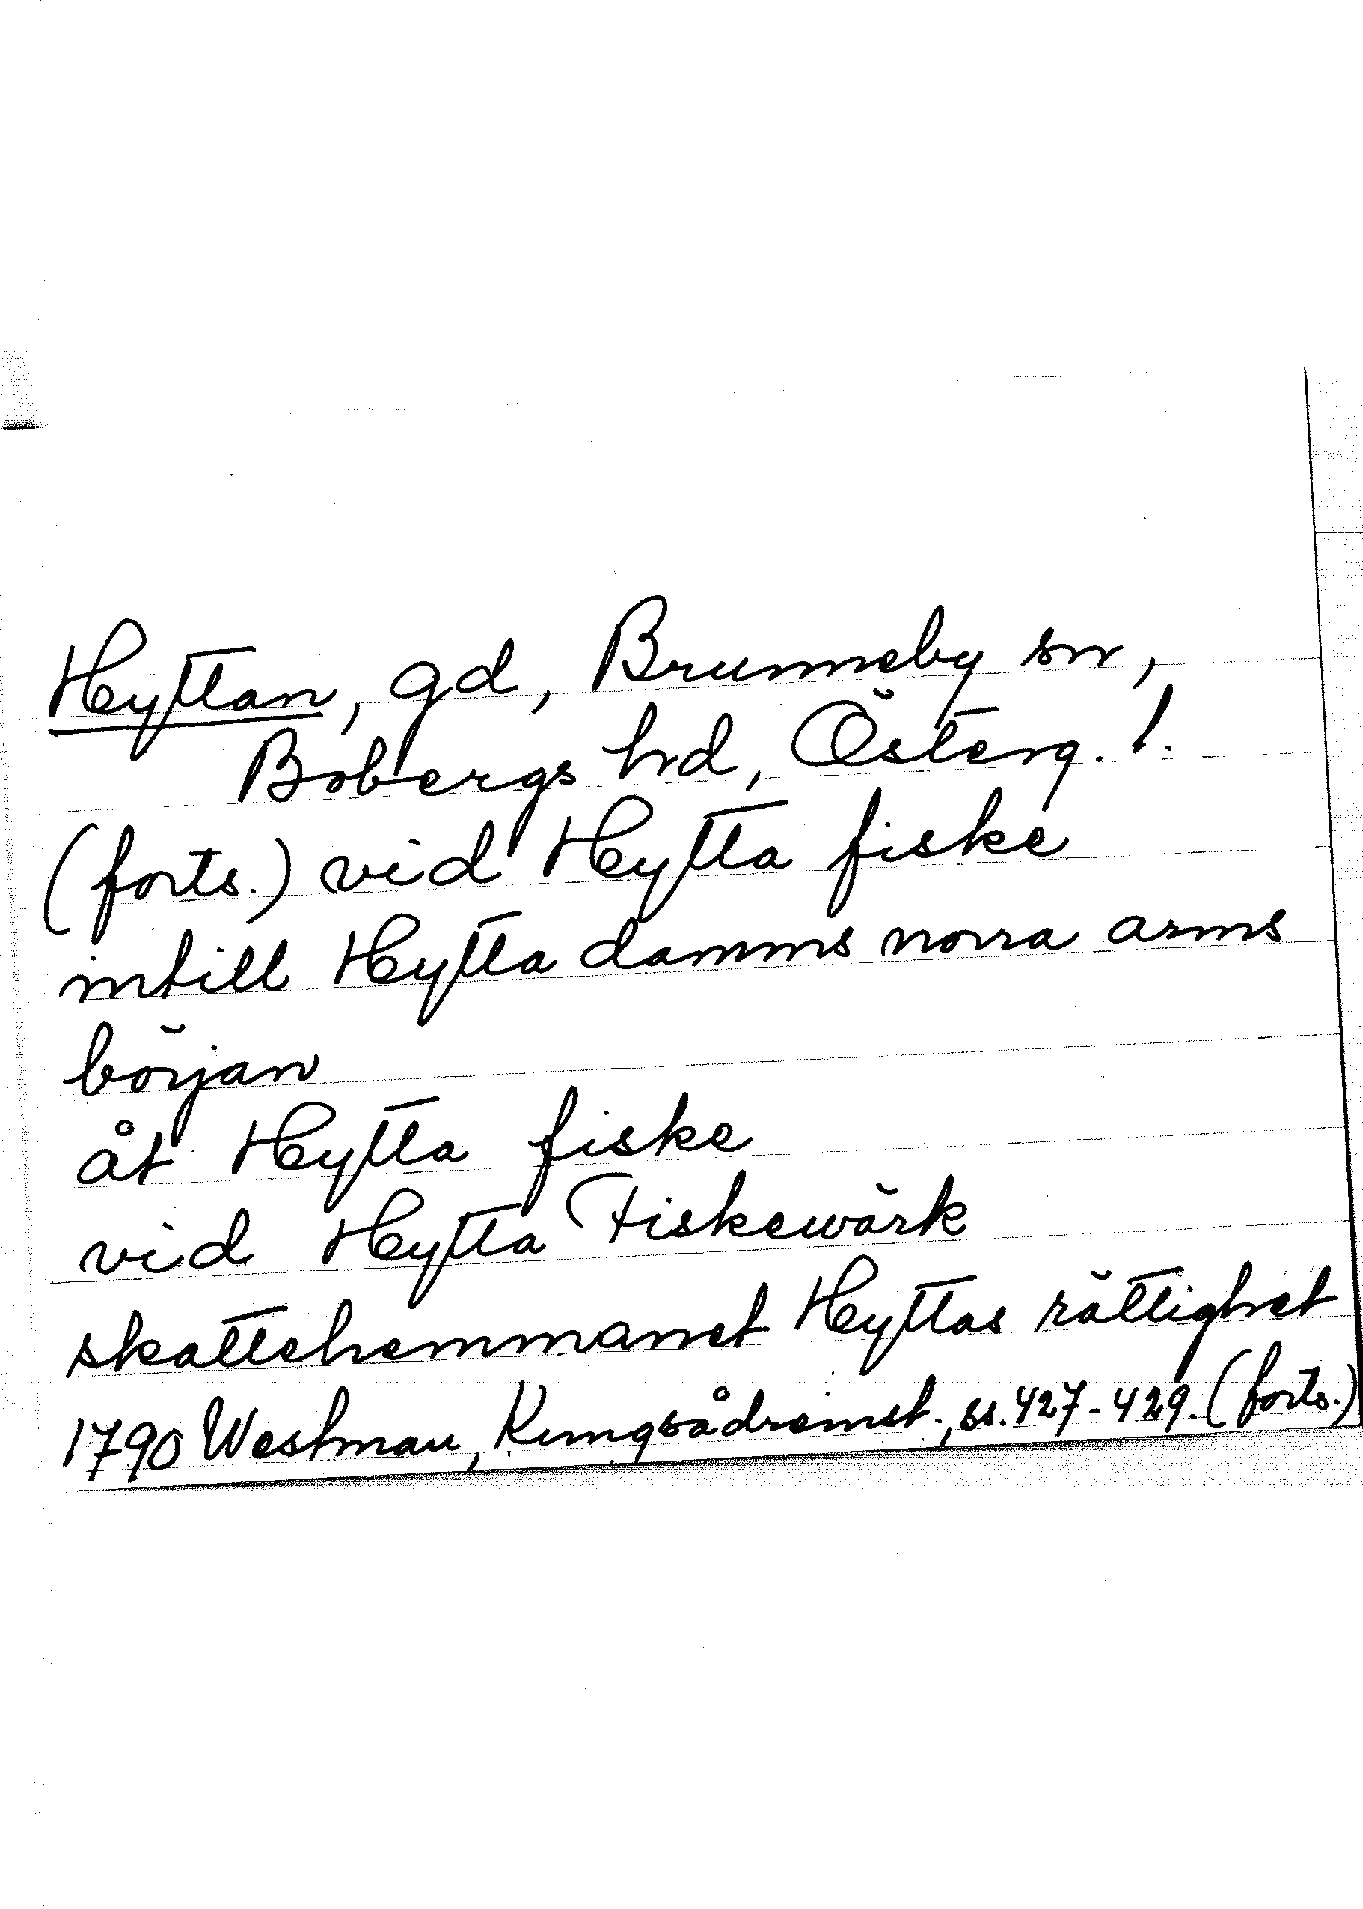 Hyttan, gd, Brunneby sn,
Bobergs hd, Österg. l.
(forts.) vid Hytta fiske
intill Hytta damms norra arms
början
åt Hytta fiske
vid Hytta Fiskewärk
skattehemmanet Hyttas rättighet
1790 Westman, Kungsådreinst., ss. 427-429. (forts.)